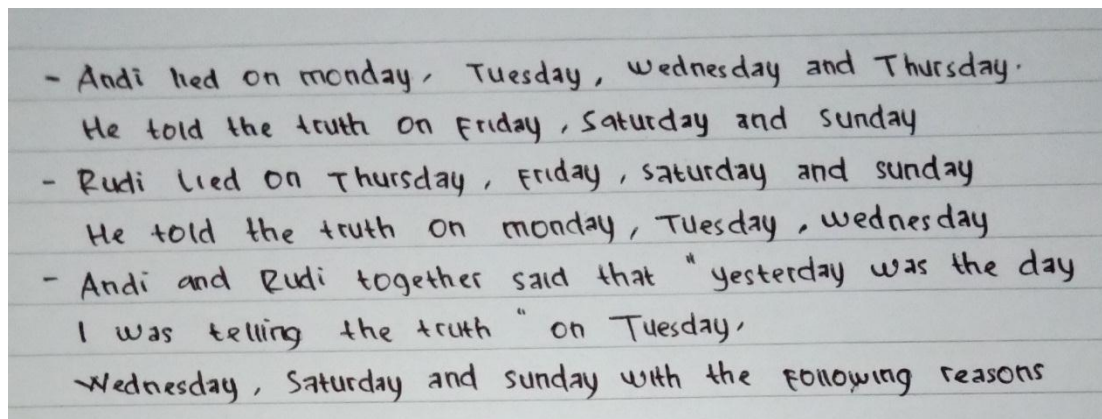 - Andi lied on monday, Tuesday, wednesday and Thursday.
He told the truth on Friday, Saturday and sunday
- Rudi lied on Thursday, Friday, saturday and sunday
He told the truth on monday, Tuesday, wednesday
- Andi and Rudi together said that "yesterday was the day
I was telling the truth" on Tuesday,
Wednesday, Saturday and sunday with the following reasons